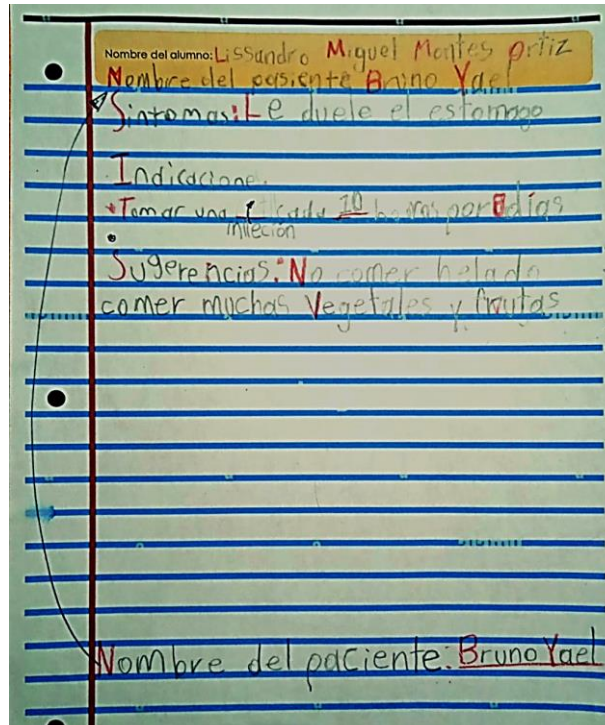 Nombre del alumno: Lissandro Miguel Montes Ortiz
Nombre del pasiente Bruno Yael
Síntomas: Le duele el estomago
Indicacione.
Tomar una cada 10 horas por 8 días
inlleción
Sugerencias: No comer helado
comer muchas vegetales y frutas
Nombre del paciente: Bruno Yael